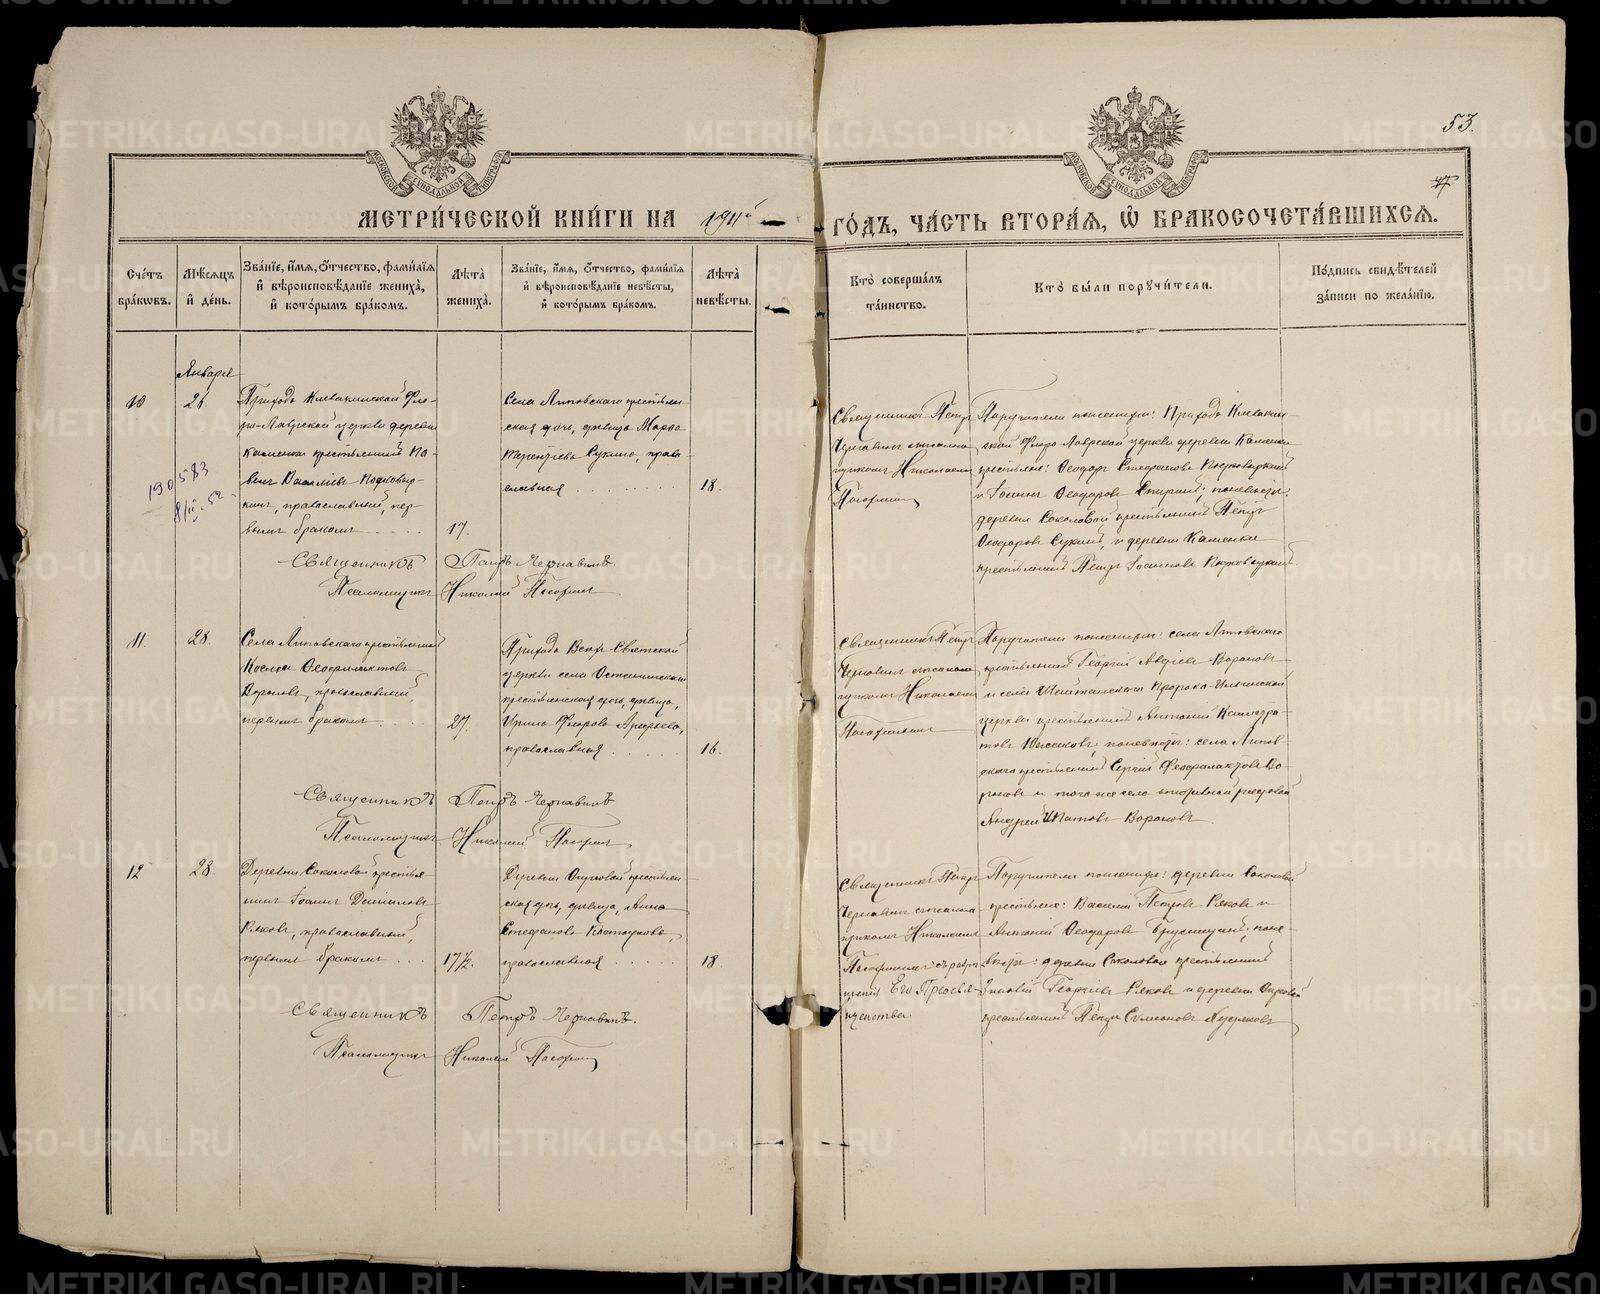 53.
МОСКОВСКОЙ СѴНОДАЛЬНОЙ ТИПОГРАФІИ
МОСКОВСКОЙ СѴНОДАЛЬНОЙ ТИПОГРАФІИ
МЕТРИ́ЧЕСКОЙ КНИ́ГИ НА 1911й ГО́ДЪ, ЧА́СТЬ ВТОРА́Я, Ѡ БРАКОСОЧЕТА́ВШИХСЯ.
Сче́тъ бра́кωвъ.
Мѣ́сяцъ и҆ де́нь.
Зва́нїе, и҆́мя, ѻ҆́тчество, фами́лїя и҆ вѣроисповѣ́данїе жениха̀, и҆ кото́рымъ бра́комъ.
Лѣ́та жениха̀.
Зва́нїе, и҆́мя, ѻ҆́тчество, фами́лїя и҆ вѣроисповѣ́данїе невѣ́сты, и҆ кото́рымъ бра́комъ.
Лѣ́та невѣ́сты.
Кто̀ соверша́лъ та́инство.
Кто̀ бы́ли порꙋчи́тели.
По́дпись свидѣ́телей за́писи по жела́нїю.
Января
10
26.
Прихода Клевакинской Фло-
ро-Лаврской церкви деревни
Каменки крестьянинъ Па-
велъ
православный, пер-
вымъ бракомъ
17.
Села Липовскаго крестьян-
ская дочь, девица Марѳа
Терентіева Сукина, право-
славная
18.
Священникъ Петръ
Чернавинъ съ псалом-
щикомъ Николаемъ
Поручители по женихѣ: Прихода Клевакин-
ской Флоро-Лаврской церкви деревни Каменки
крестьяне: Ѳеодоръ Стефановъ
и Іоаннъ Ѳеодоровъ по невѣстѣ:
деревни Соколовой крестьянинъ Петръ
Ѳеодоровъ Сукинъ, и деревни Каменки
крестьянинъ Петръ Іоанновъ
190583
8/II-52
Священникъ Петръ Чернавинъ.
Псаломщикъ Николай
11.
28.
Села Липовскаго крестьянинъ
Косма Ѳеофилактовъ
Вороновъ, православный,
первымъ бракомъ
27.
Прихода Всѣх-Святской
церкви села Останинскаго
крестьянская дочь, девица,
Ирина Флорова Арефьева,
православная
16.
Священникъ Петръ
Чернавинъ съ псалом-
щикомъ Николаемъ
Поручители по женихѣ: села Липовскаго
крестьянинъ Георгій Авдіевъ Вороновъ
и села Шайтанскаго Пророко-Ильинской
церкви крестьянинъ Антоній
по невѣстѣ: села Липов-
скаго крестьянинъ Сергій Ѳеофилактовъ Во-
роновъ и того же села запасный рядовой
Андрей Ипатовъ Вороновъ.
Священникъ Петръ Чернавинъ
Псаломщикъ Николай
12
28.
Деревни Соколовой крестья-
нинъ Іоаннъ Даниловъ
Ряковъ, православный,
первымъ бракомъ
17½.
крестьян-
ская дочь, девица, Анна
Стефанова
православная
18.
Священникъ Петръ
Чернавинъ съ псалом-
щикомъ Николаемъ
съ разрѣ-
шенія Его Преосвя-
щенства.
Поручители по женихѣ: деревни Соколовой
крестьяне: Василій Петровъ Ряковъ и
Антоній Ѳеодоровъ Брусницынъ; по не-
вѣстѣ: деревни Соколовой крестьянинъ
Зиновій Георгіевъ Ряковъ и деревни
крестьянинъ Петръ Симеоновъ
Священникъ Петръ Чернавинъ.
Псаломщикъ Николай
METRIKI.GASO-URAL.RU